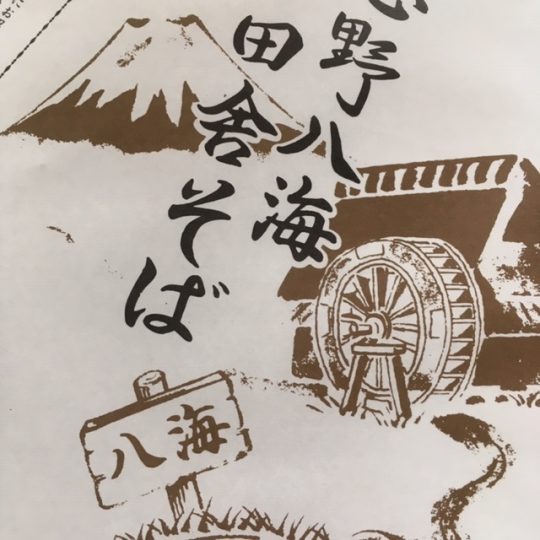 忍野八海
田舎そば
八海